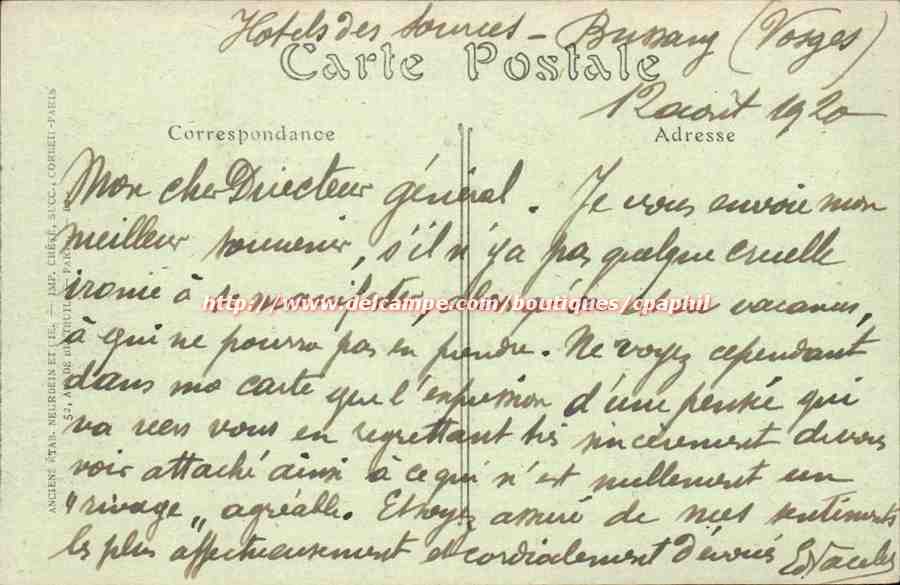 Hotel des Sources - Bussang (Vosges)
Carte Postale
12 août 1920
Correspondance
Adresse
Mon cher Directeur général. Je vous envoie mon
meilleur souvenir, s'il n'y a pas quelque cruelle
ironie à se manifester, quand on est en vacances,
http://www.delcampe.com/boutiques/cpaphil
à qui ne pourra pas en prendre. Ne voyez cependant
dans ma carte que l'expression d'une pensée qui
va vers vous en regrettant très sincèrement de vous
voir attaché ainsi à ce qui n'est nullement un
"rivage" agréable. Et soyez assuré de mes sentiments
les plus affectueusement et cordialement dévoués
ANCIENS ETAB. NEURDEIN ET CIE. — IMP. CRÉTÉ, SUCC., CORBEIL-PARIS
52, AV. DE BRETEUIL — PARIS